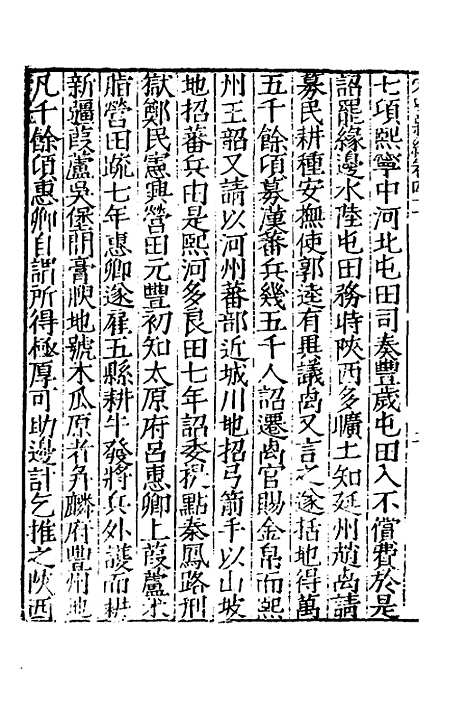 七頃熙寧中河北屯田司奏豐歲屯田入不償費於是
詔罷緣邊水陸屯田務時陜西多曠土知延州趙卨請
募民耕種安撫使郭逵有異議卨又言之遂括地得萬
五千餘頃募漢蕃兵幾五千人詔遷卨官賜金帛而熙
州王韶又請以河州蕃部近城川地招弓箭手以山坡
地招蕃兵由是熙河多良田七年詔委提點秦鳳路刑
獄鄭民憲興營田元豐初知太原府呂惠卿上葭蘆米
脂營田疏七年惠卿遂雇五縣耕牛發將兵外護而耕
新疆葭蘆吳堡間膏腴地號木瓜原者弁麟府豐州地
凡千餘頃惠卿自謂所得極厚可助邊計乞推之陜西